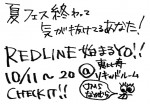 夏フェス終わって
気が抜けてるあなた!
REDLINE始まるYO!!
10/11〜20@恵比寿
リキッドルーム
CHECK IT!!
JMS